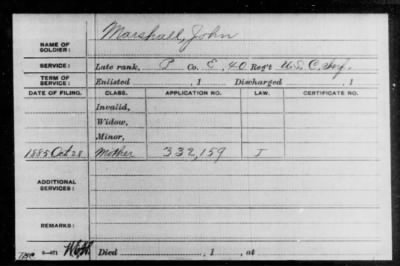 Marshall, John
NAME OF SOLDIER:
SERVICE: Late rank, P Co. E, 40 Reg't U.S.C. Inf.
TERM OF SERVICE: Enlisted , 1 Discharged , 1
DATE OF FILING. CLASS. APPLICATION NO. LAW. CERTIFICATE NO.
Invalid,
Widow,
Minor,
1885 Oct 28 Mother 332,159 J
ADDITIONAL SERVICES:
REMARKS:
Died , 1 , at